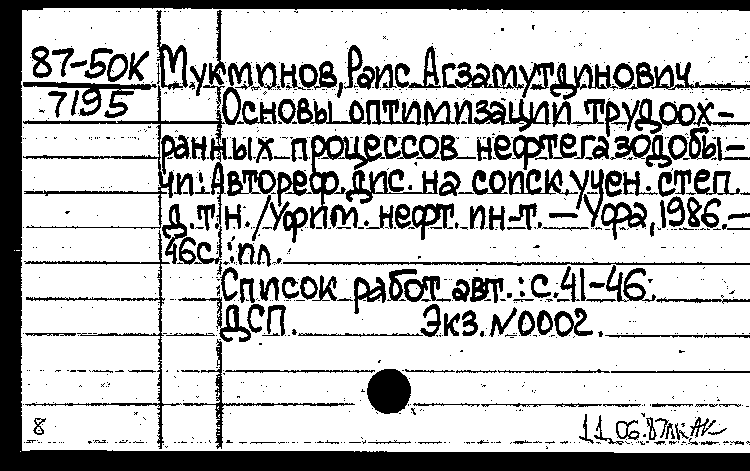 87-50К Мукминов, Раис Агзамутдинович.
7195 Основы оптимизации трудоох-
ранных процессов нефтегазодобы-
чи: Автореф. дис. на соиск. учен. степ.
д.т.н. /Уфим. нефт. ин-т. — Уфа, 1986. —
46с. : ил.
Список работ авт.: с. 41-46.
ДСП. Экз. N0002.
8 11.06.87